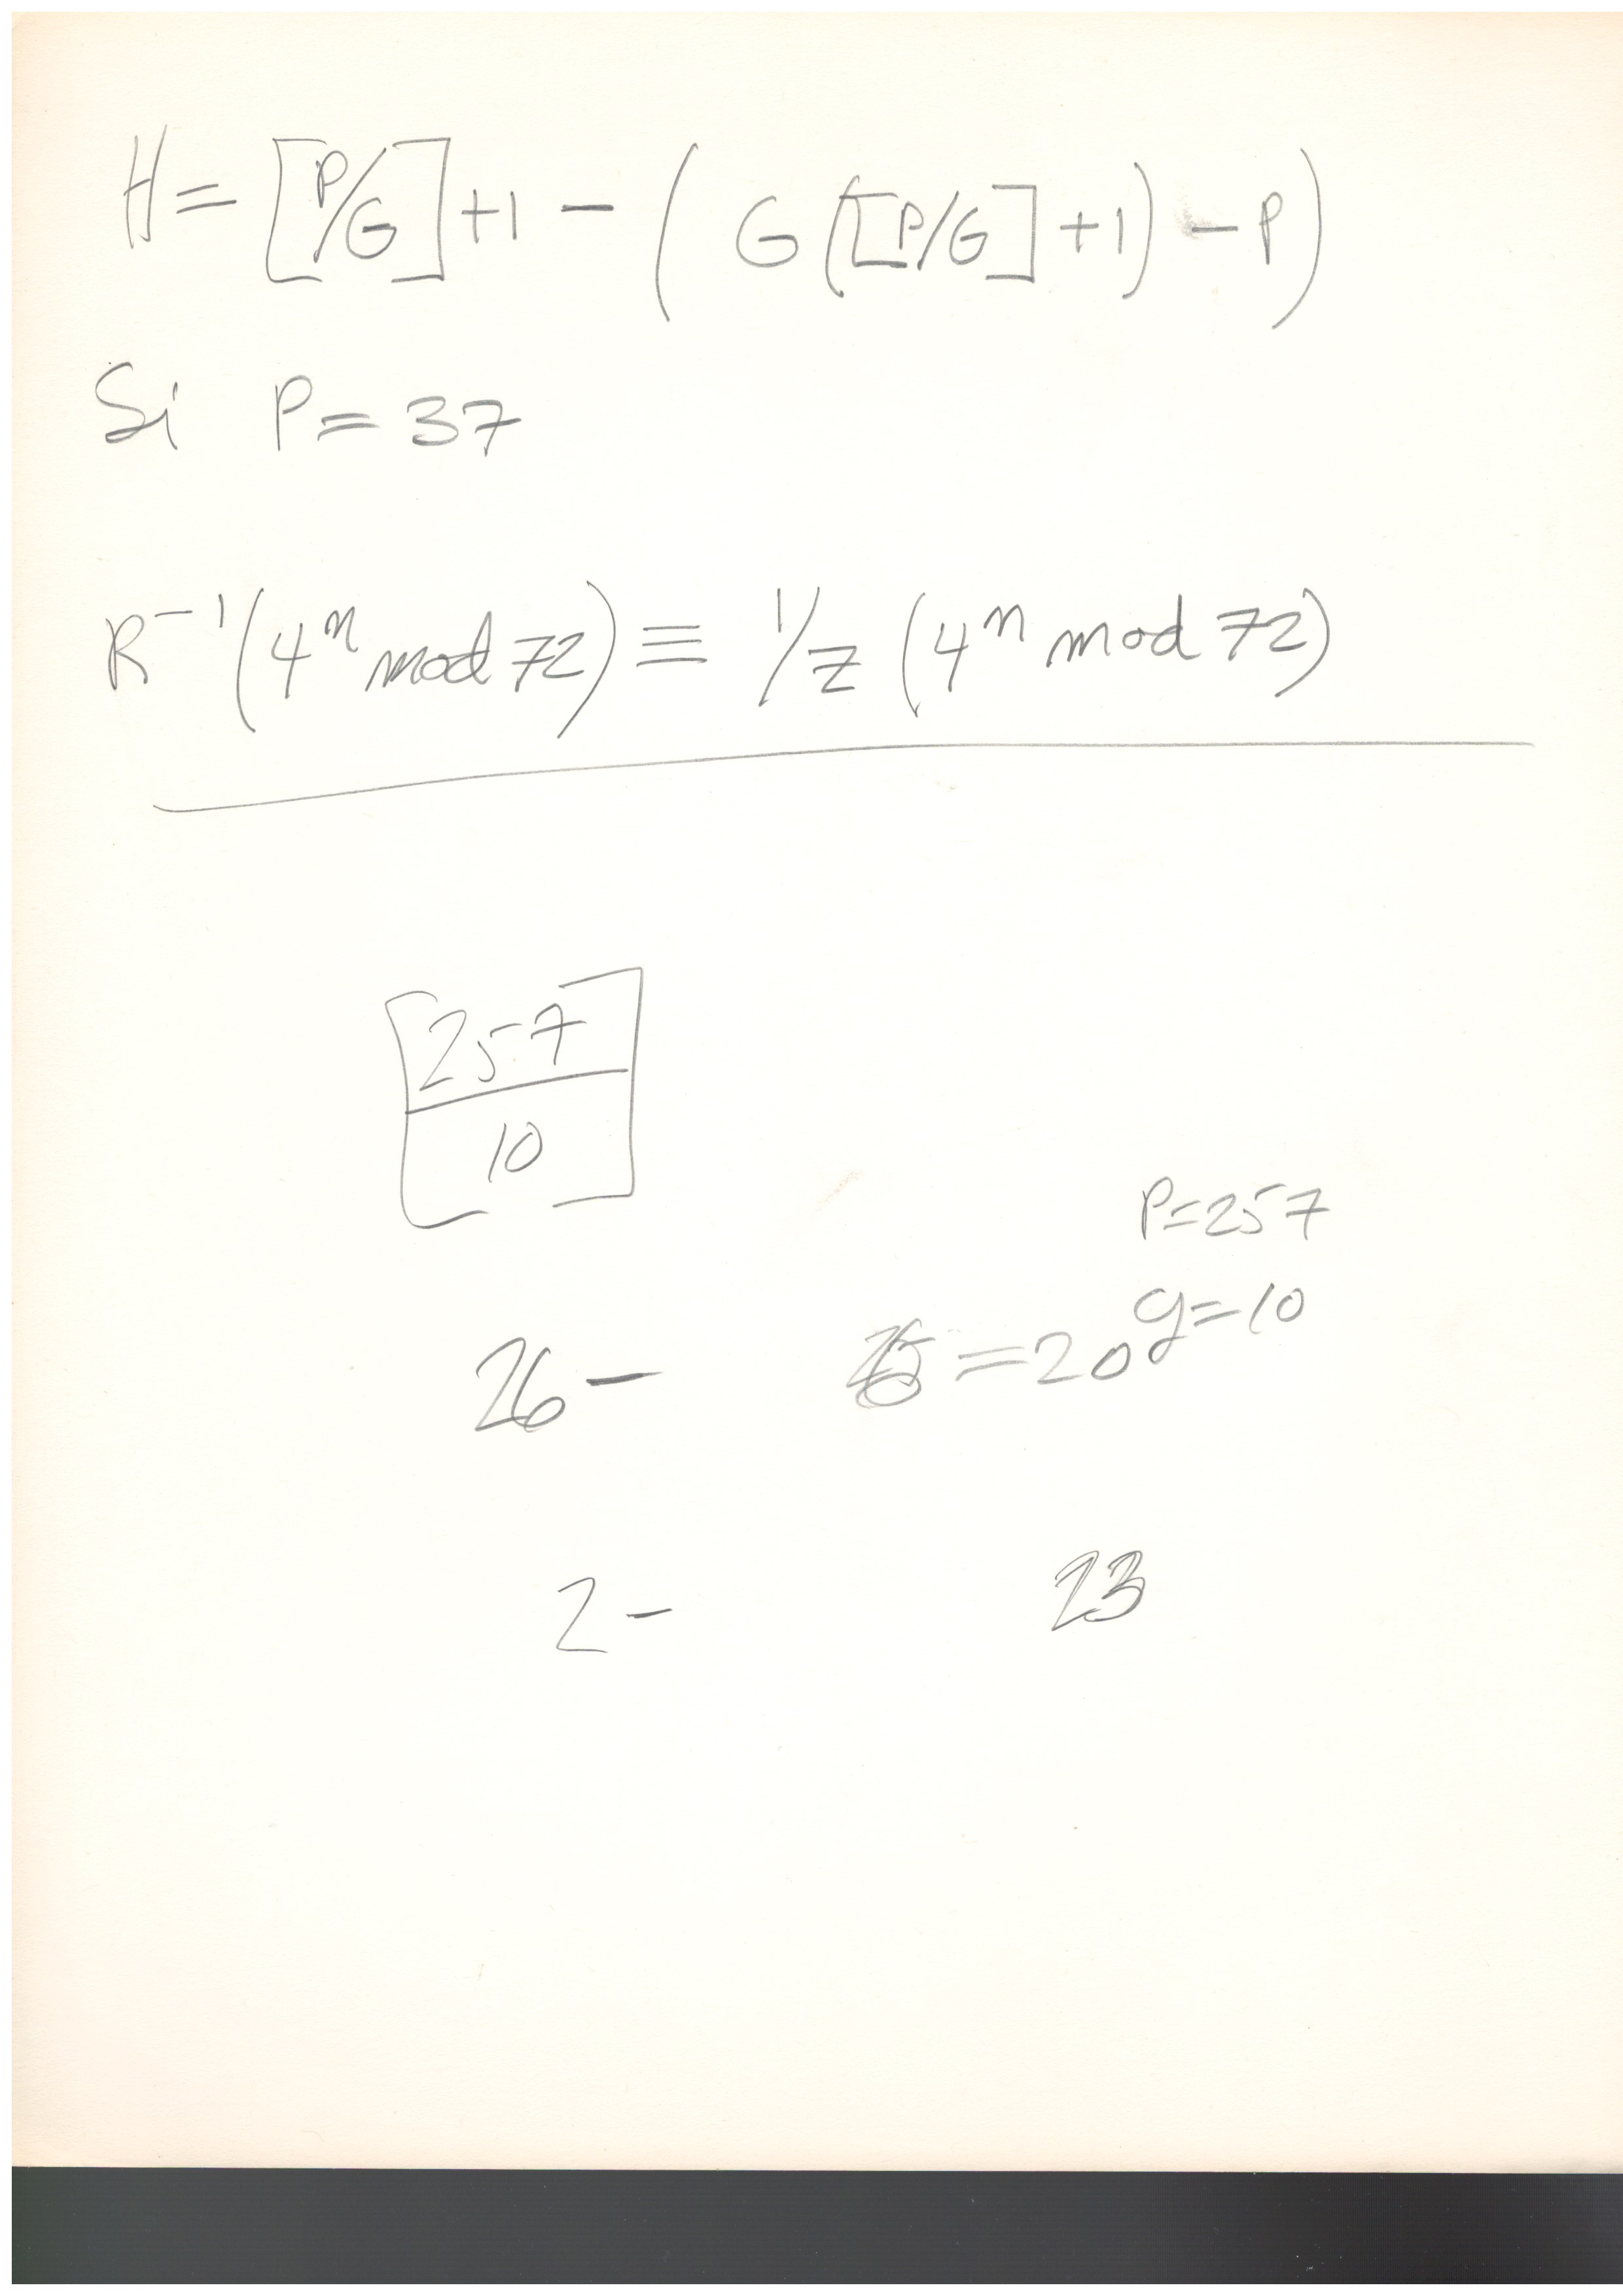 H = [P/G] + 1 − ( G([P/G] + 1) − P )
Si P = 37
R⁻¹(4ⁿ mod 72) ≡ 1/z (4ⁿ mod 72)
[257/10]
P=257
g=10
26 − = 20
2 − 23